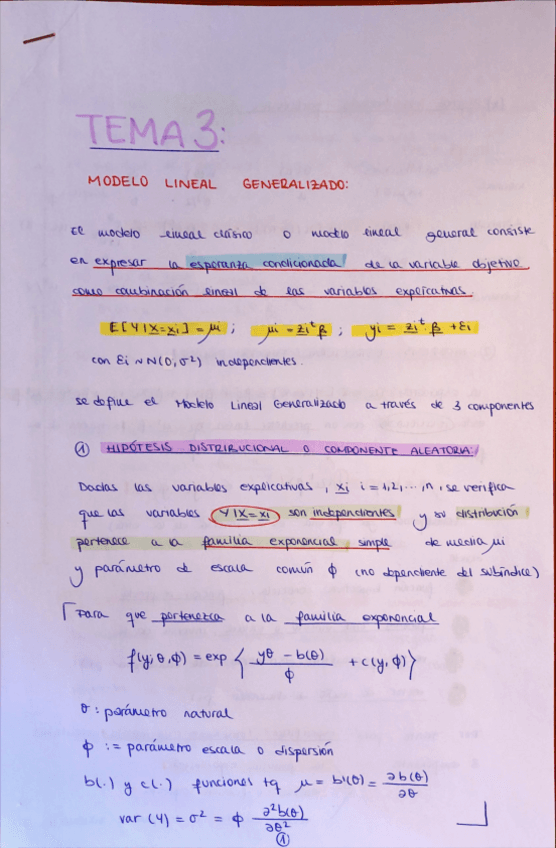 TEMA 3:
MODELO LINEAL GENERALIZADO:
El modelo lineal clásico o modelo lineal general consiste
en expresar la esperanza condicionada de la variable objetivo
como combinación lineal de las variables explicativas.
E[Y|X=xi] = μi ; μi = zi^t β ; yi = zi^t·β + εi
con εi ~ N(0,σ²) independientes.
se define el Modelo Lineal Generalizado a través de 3 componentes
① HIPÓTESIS DISTRIBUCIONAL O COMPONENTE ALEATORIA:
Dadas las variables explicativas, xi i=1,2,...,n, se verifica
que las variables Y|X=xi son independientes y su distribución
pertenece a la familia exponencial simple de media μi
y parámetro de escala común ϕ (no dependiente del subíndice)
Para que pertenezca a la familia exponencial
f(y;θ,ϕ) = exp { (yθ - b(θ))/ϕ + c(y,ϕ) }
θ: parámetro natural
ϕ := parámetro escala o dispersión
b(.) y c(.) funciones tq μ = b'(θ) = ∂b(θ)/∂θ
var(Y) = σ² = ϕ ∂²b(θ)/∂θ²
①